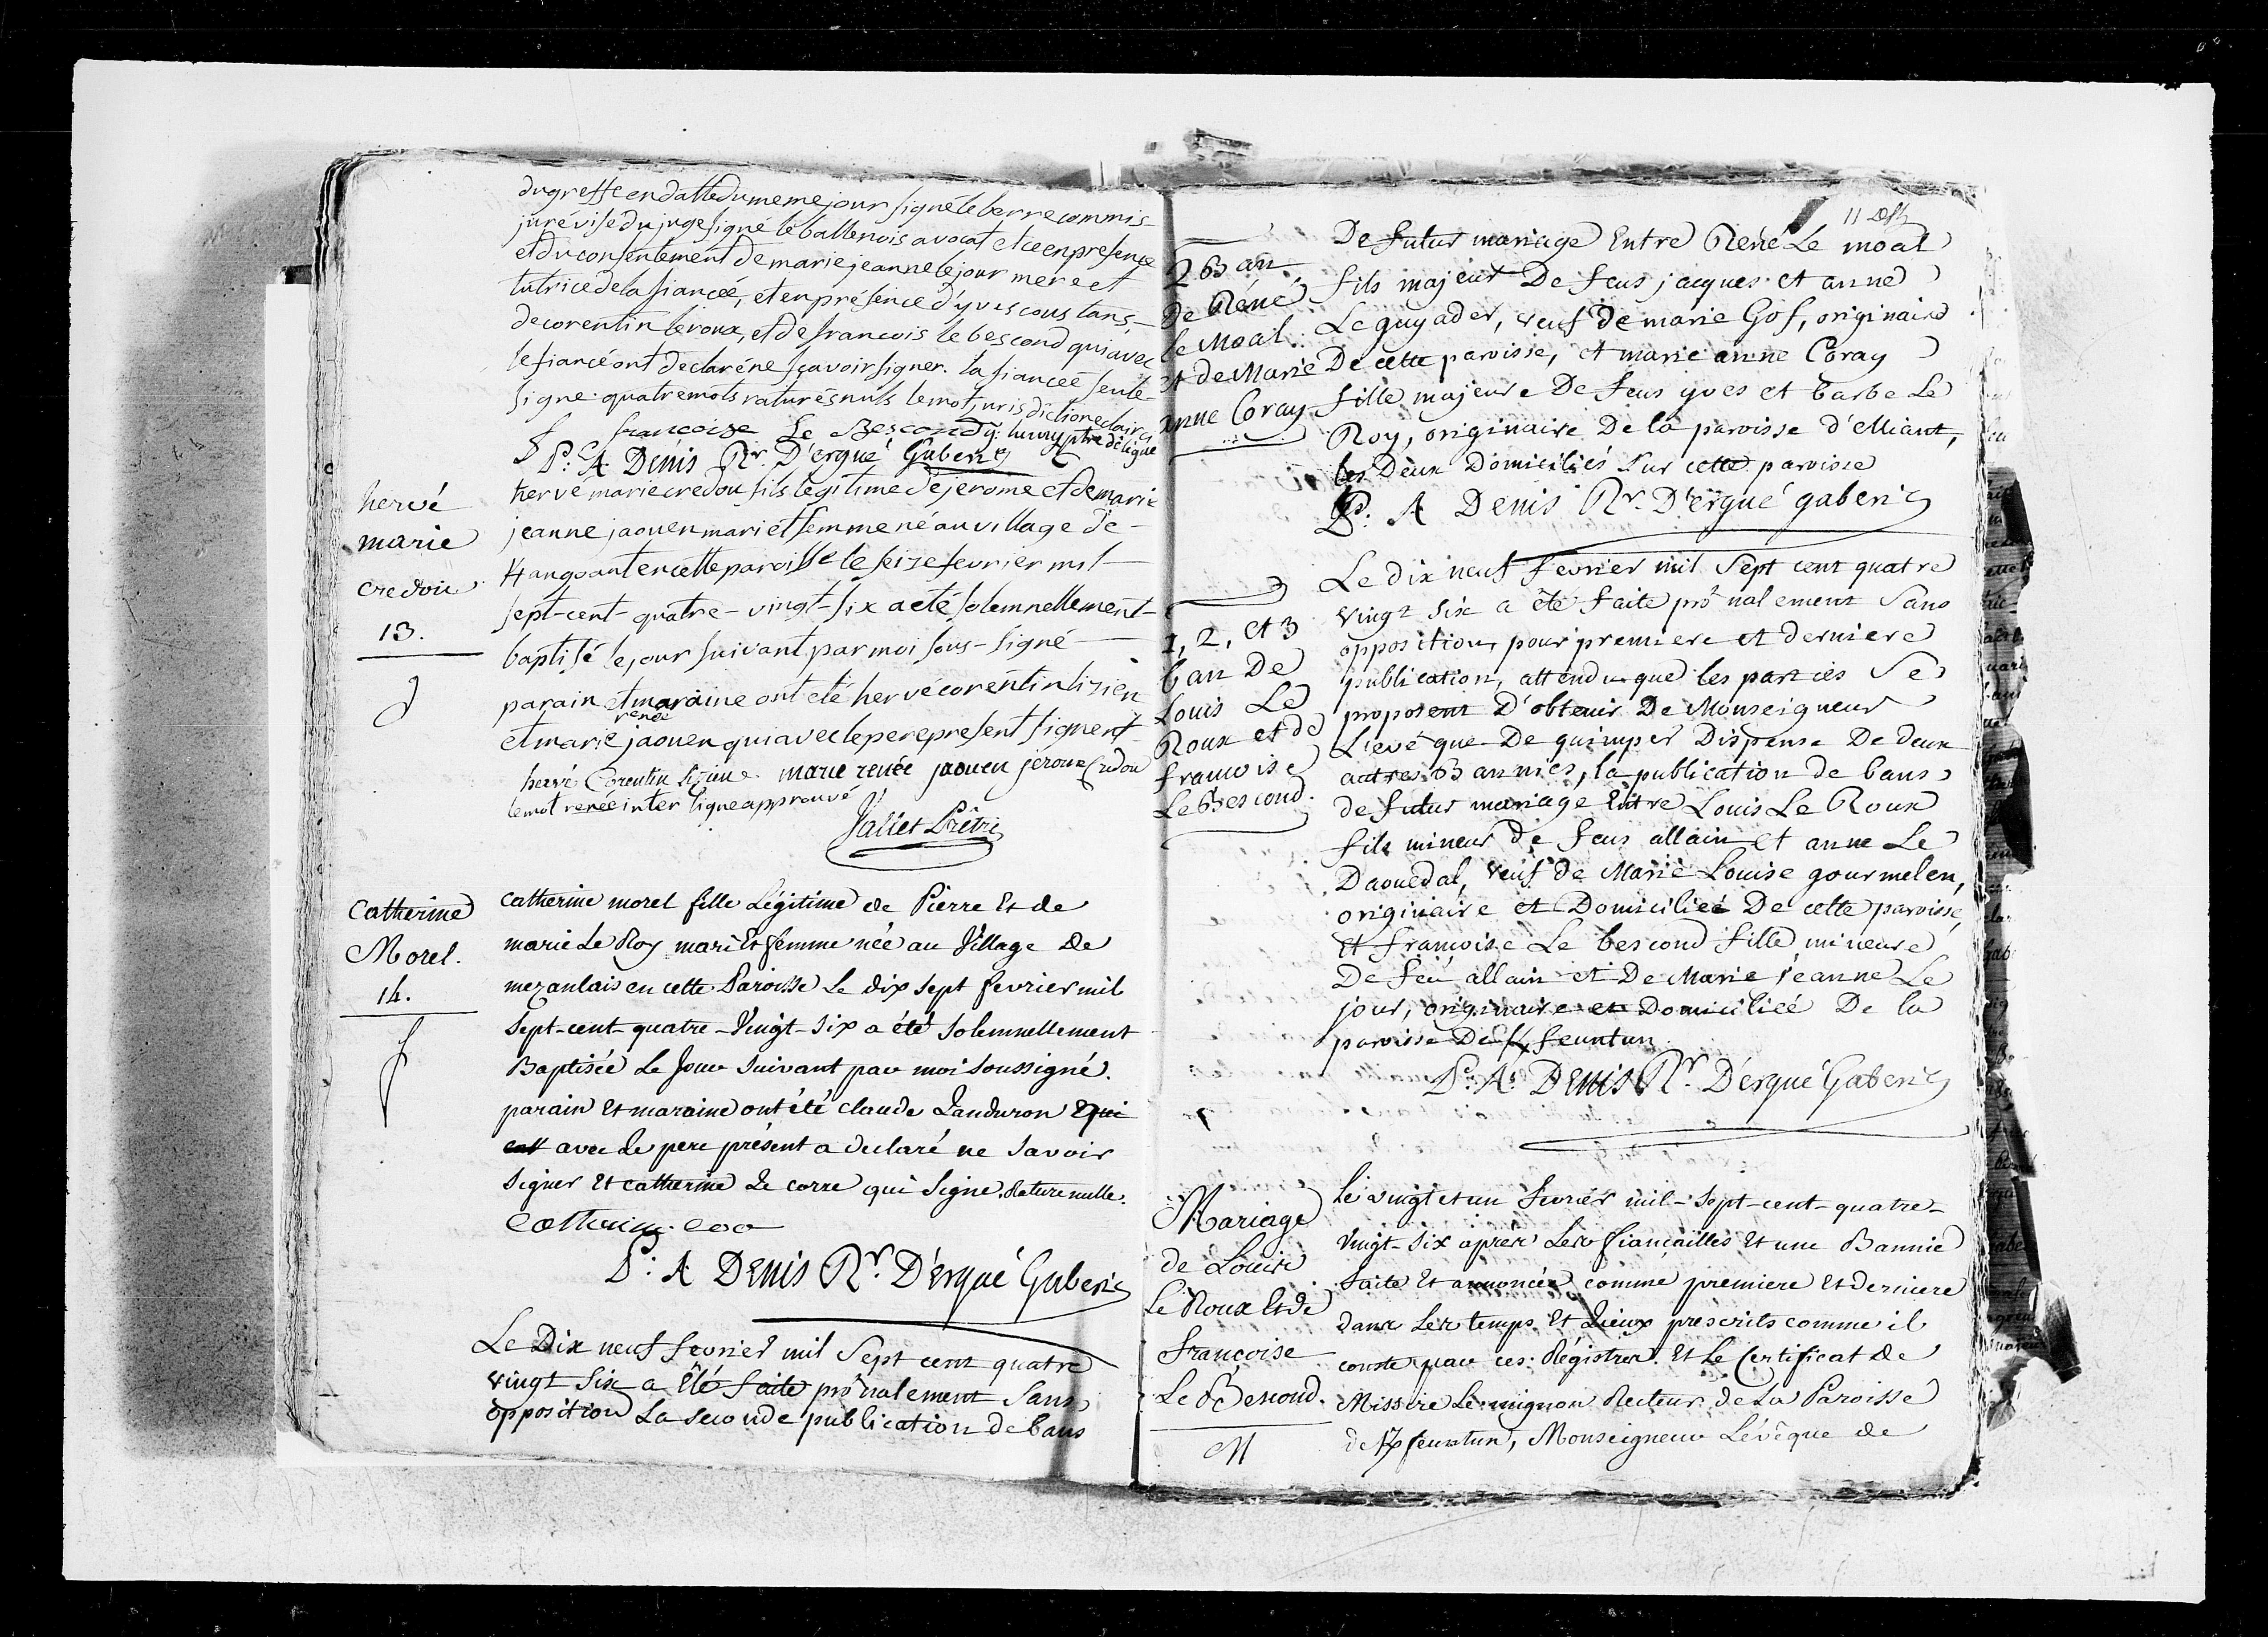 du greffe en datte du meme jour signé le berre commis
juré visé du juge signé le ballenois avocat et ce en presence
et du consentement de marie jeanne le jour mere et
tutrice de la fiancée, et en présence d'yves coustans,
de corentin le roux, et de francois le bescond qui avec
le fiancé ont declaré ne sçavoir signer. la fiancée seule
signe. quatre mots raturés nuls le mot, jurisdiction eclairci
francoise Le Bescond
ptre délégué
P: A Denis Rr. D'ergué Gaberic
hervé
marie
credou
13.
hervé marie credou fils legitime de jerome et de marie
jeanne jaouen mari et femme né au village de
en cette paroisse le seize fevrier mil
sept-cent-quatre-vingt-six a eté solemnellement
baptisé le jour suivant par moi sous-signé
parain et maraine ont eté hervé corentin lizien
renée
et marie jaouen qui avec le pere present signent
hervé Corentin lizien marie renée jaouen jerome Credou
le mot renée interligne approuvé
Jallet Prêtre
Catherine
Morel.
14.
Catherine morel fille Légitime de Pierre Et de
marie Le Roy mari Et femme née au Village de
mezanlais en cette Paroisse Le dix sept fevrier mil
Sept-cent-quatre-Vingt-six a été solemnellement
Baptisée Le Jour suivant par moi soussigné.
parain Et maraine ont été claude Landuron Equi
avec Le pere présent a declaré ne savoir
signer Et catherine Le corre qui signe. Rature nulle.
Catherine
P: A Denis Rr. D'ergué Gaberic
Le Dix neuf fevrier mil Sept cent quatre
vingt six a été faite prônalement Sans
opposition La seconde publication de bans
11
2 Ban
de Réné
le Moal
et de Marie
anne Coray
De futur mariage Entre René Le moal
fils majeur De feus jacques et anne
Le guyader, veuf de marie Gof, originaire
De cette paroisse, et marie anne Coray
fille majeure De feus yves et barbe Le
Roy, originaire De la paroisse d'elliant,
les Deux Domiciliés Sur cette paroisse
P. A Denis Rr. D'ergué gaberic
1, 2, et 3
ban De
Louis Le
Roux et de
francoise
Le Bescond.
Le dix neuf fevrier mil Sept cent quatre
vingt six a été faite prônalement Sans
opposition, pour premiere et derniere
publication, attendu que les parties Se
proposent D'obtenir De Monseigneur
L'evêque De quimper Dispense De deux
autres Bannies, la publication de bans
de futur mariage Entre Louis Le Roux
fils mineur de feus allain et anne Le
Daouedal, veuf de Marie Louise gourmelen,
originaire et Domicilieé De cette paroisse,
et francoise Le bescond fille mineure
De feu allain et De Marie jeanne Le
jour, originaire et Domiciliée De la
paroisse De feuntun
P. A. Denis Rr. D'ergué Gaberic
Mariage
de Louis
Le Roux Et de
Françoise
Le Bescond.
M
Le vingt et un fevrier mil-sept-cent-quatre-
vingt-six après Les fiançailles Et une Bannie
faite Et annoncée comme premiere Et derniere
dans Les temps Et Lieux prescrits comme il
conste par ces Régistres. Et Le Certificat de
Missire Le mignon Recteur de La Paroisse
de feuntun, Monseigneur L'évêque de